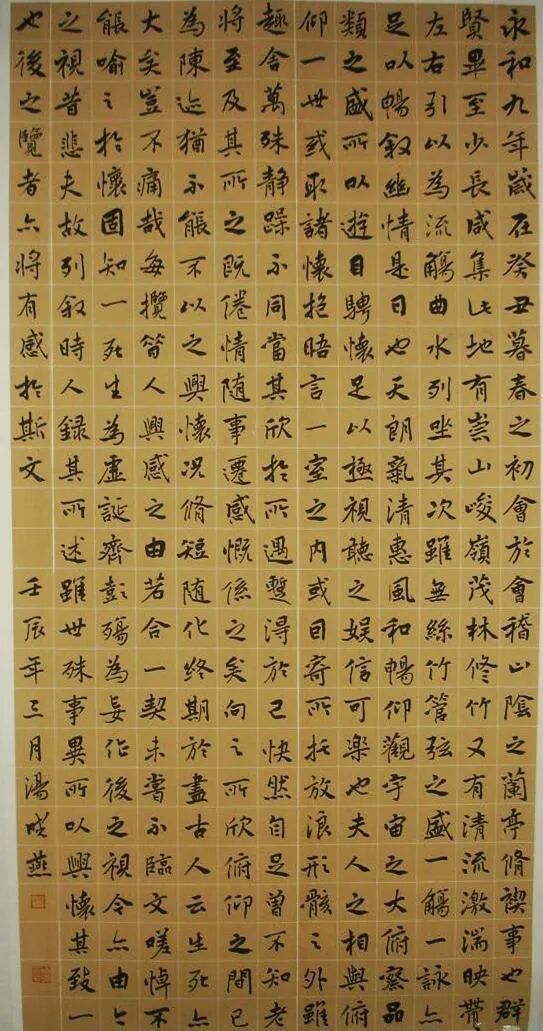 永和九年歲在癸丑暮春之初會於會稽山陰之蘭亭脩禊事也群
賢畢至少長咸集此地有崇山峻嶺茂林修竹又有清流激湍映帶
左右引以為流觴曲水列坐其次雖無絲竹管弦之盛一觴一詠亦
足以暢叙幽情是日也天朗氣清惠風和暢仰觀宇宙之大俯察品
類之盛所以遊目騁懷足以極視聽之娛信可樂也夫人之相與俯
仰一世或取諸懷抱晤言一室之内或因寄所托放浪形骸之外雖
趣舍萬殊静躁不同當其欣於所遇暫得於己快然自足曾不知老
將至及其所之既倦情随事遷感慨係之矣向之所欣俯仰之間已
為陳迹猶不能不以之興懷况脩短随化終期於盡古人云生死亦
大矣豈不痛哉每攬昔人興感之由若合一契未嘗不臨文嗟悼不
能喻之於懷固知一死生為虛誕齊彭殤為妄作後之視今亦由今
之視昔悲夫故列叙時人錄其所述雖世殊事異所以興懷其致一
也後之覽者亦將有感於斯文 壬辰年三月湯晓燕